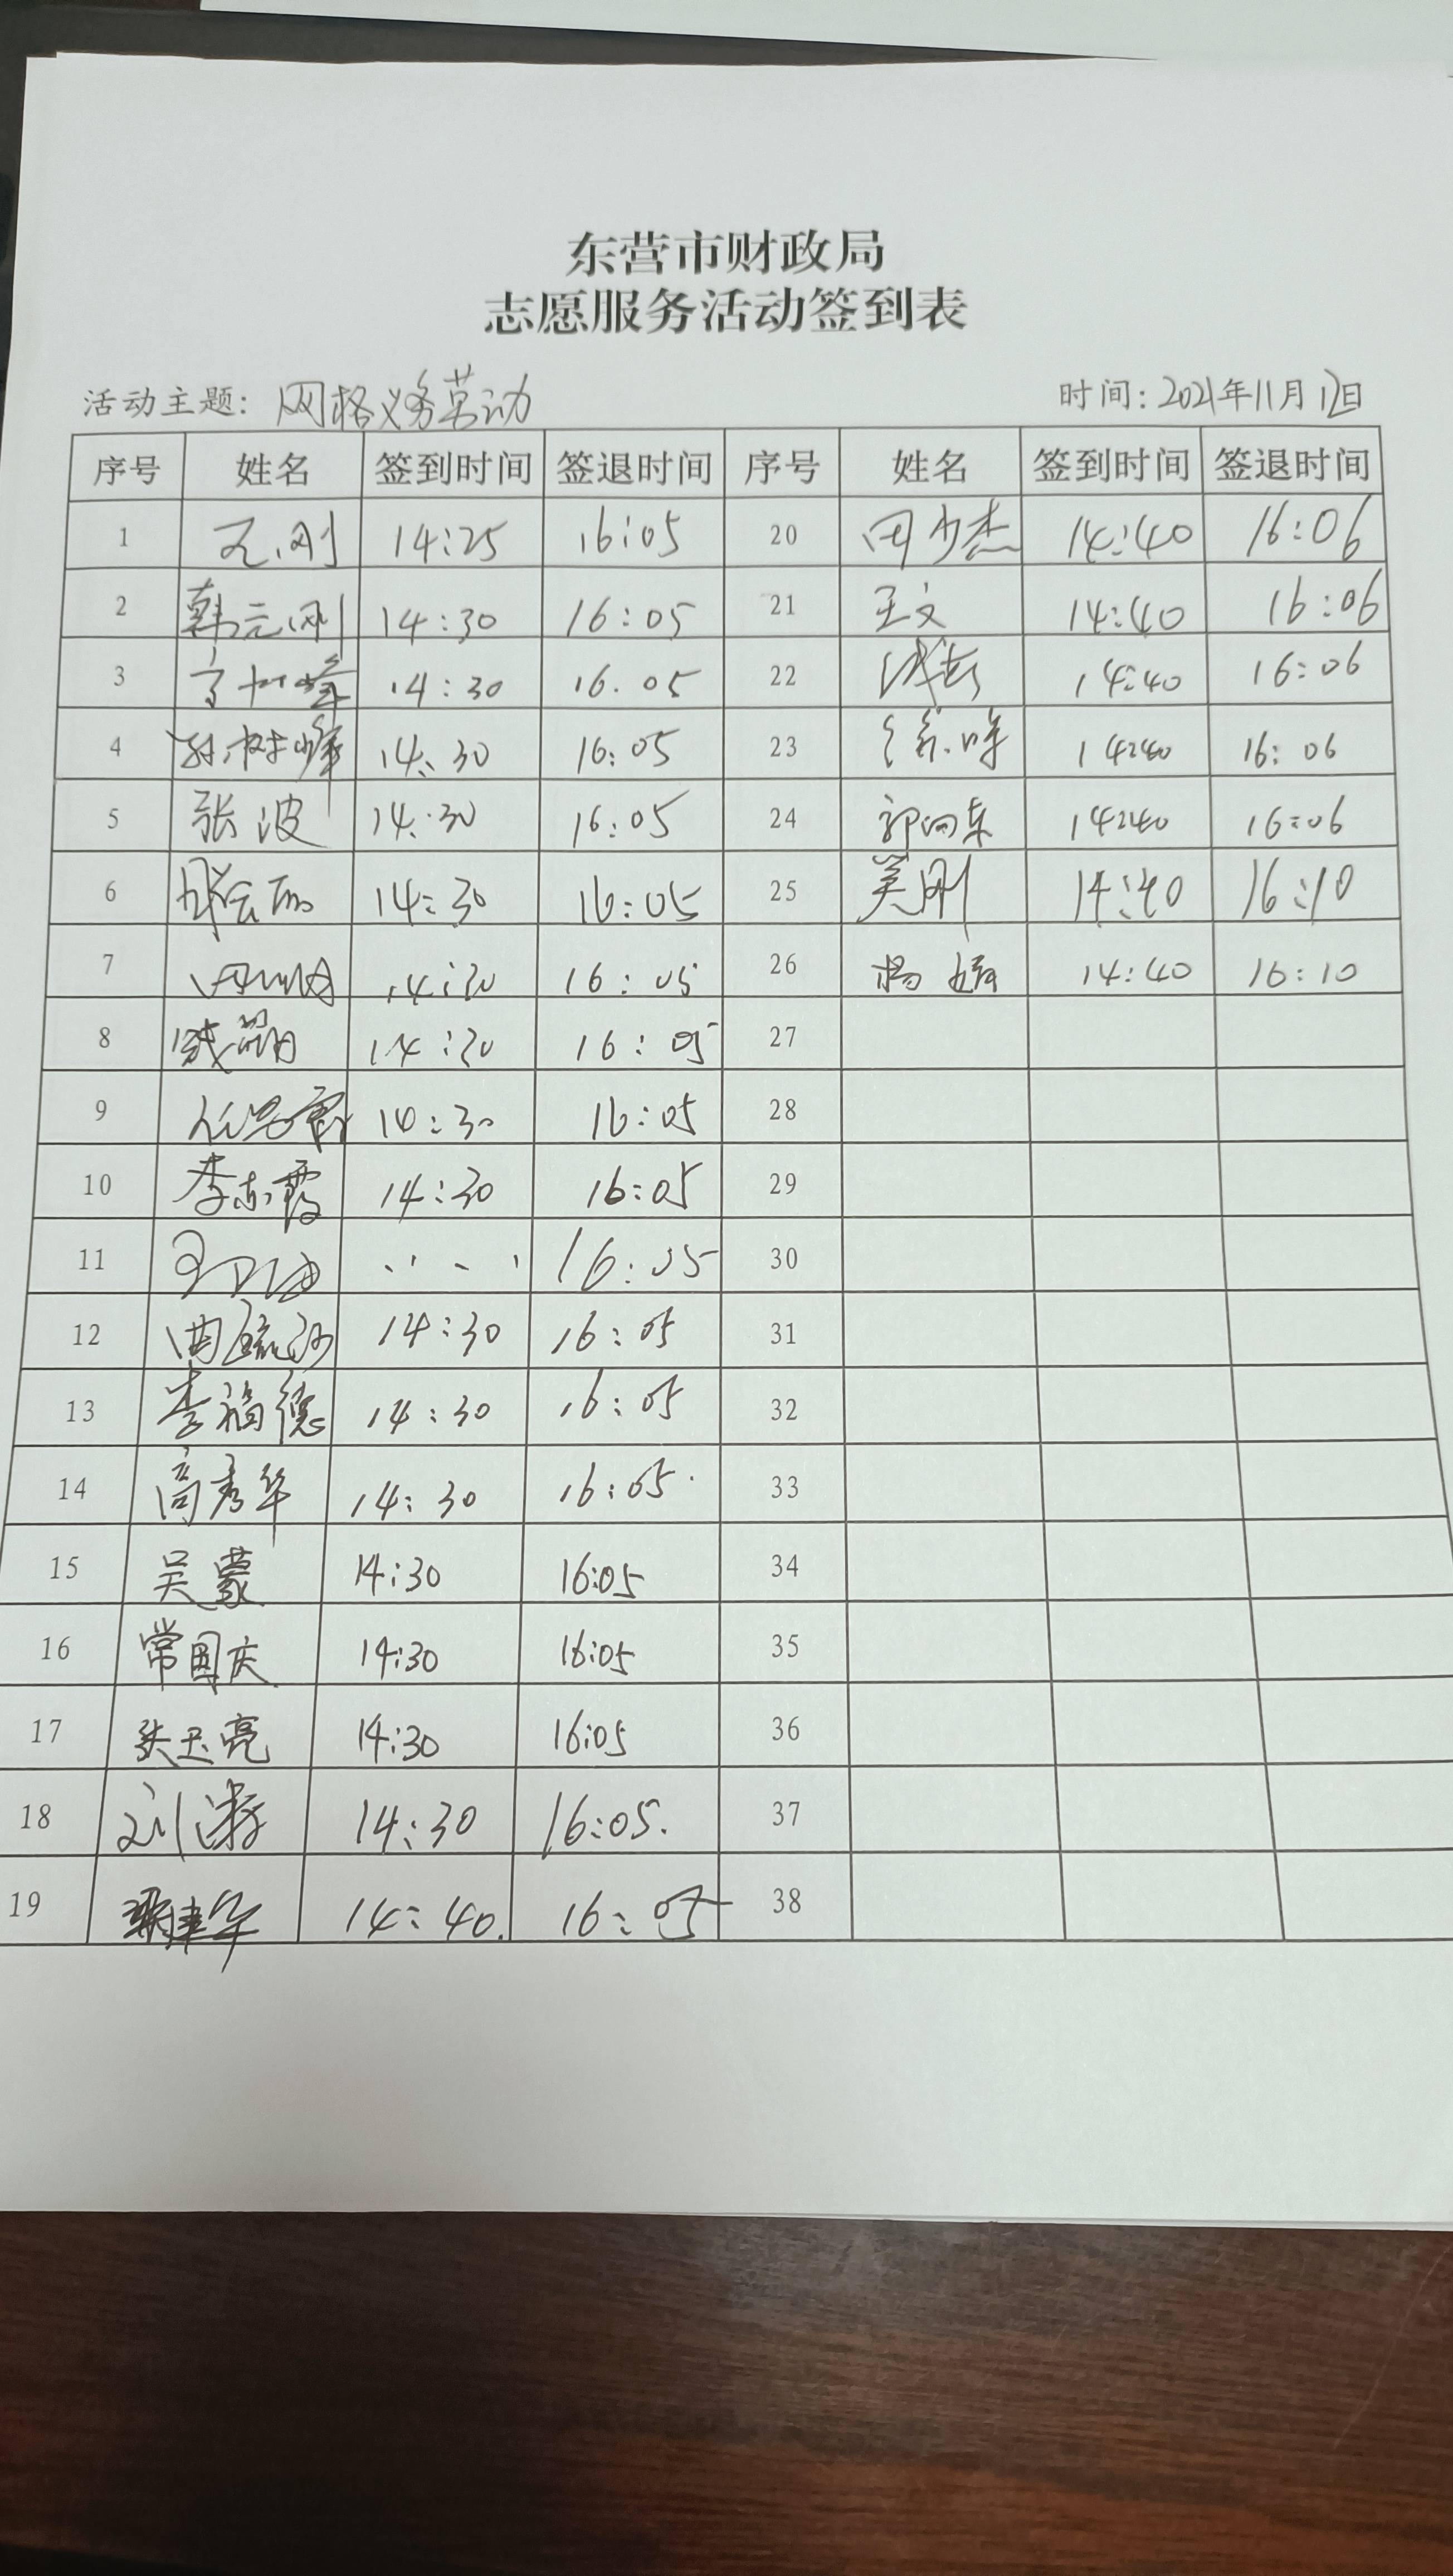 东营市财政局
志愿服务活动签到表
活动主题：网格义务劳动 时间：2021年11月12日
序号 姓名 签到时间 签退时间 序号 姓名 签到时间 签退时间
1 14:25 16:05 20 田少杰 14:40 16:06
2 韩元刚 14:30 16:05 21 王文 14:40 16:06
3 14:30 16.05 22 14:40 16:06
4 孙树峰 14:30 16:05 23 14:40 16:06
5 张波 14:30 16:05 24 郭向东 14:40 16:06
6 14:30 16:05 25 美刚 14:40 16:10
7 14:30 16:05 26 杨婧 14:40 16:10
8 14:30 16:05 27
9 14:30 16:05 28
10 李东霞 14:30 16:05 29
11 16:05 30
12 14:30 16:05 31
13 李福德 14:30 16:05 32
14 高秀华 14:30 16:05 33
15 吴蒙 14:30 16:05 34
16 常国庆 14:30 16:05 35
17 张玉亮 14:30 16:05 36
18 刘 14:30 16:05. 37
19 14:40. 16:05 38